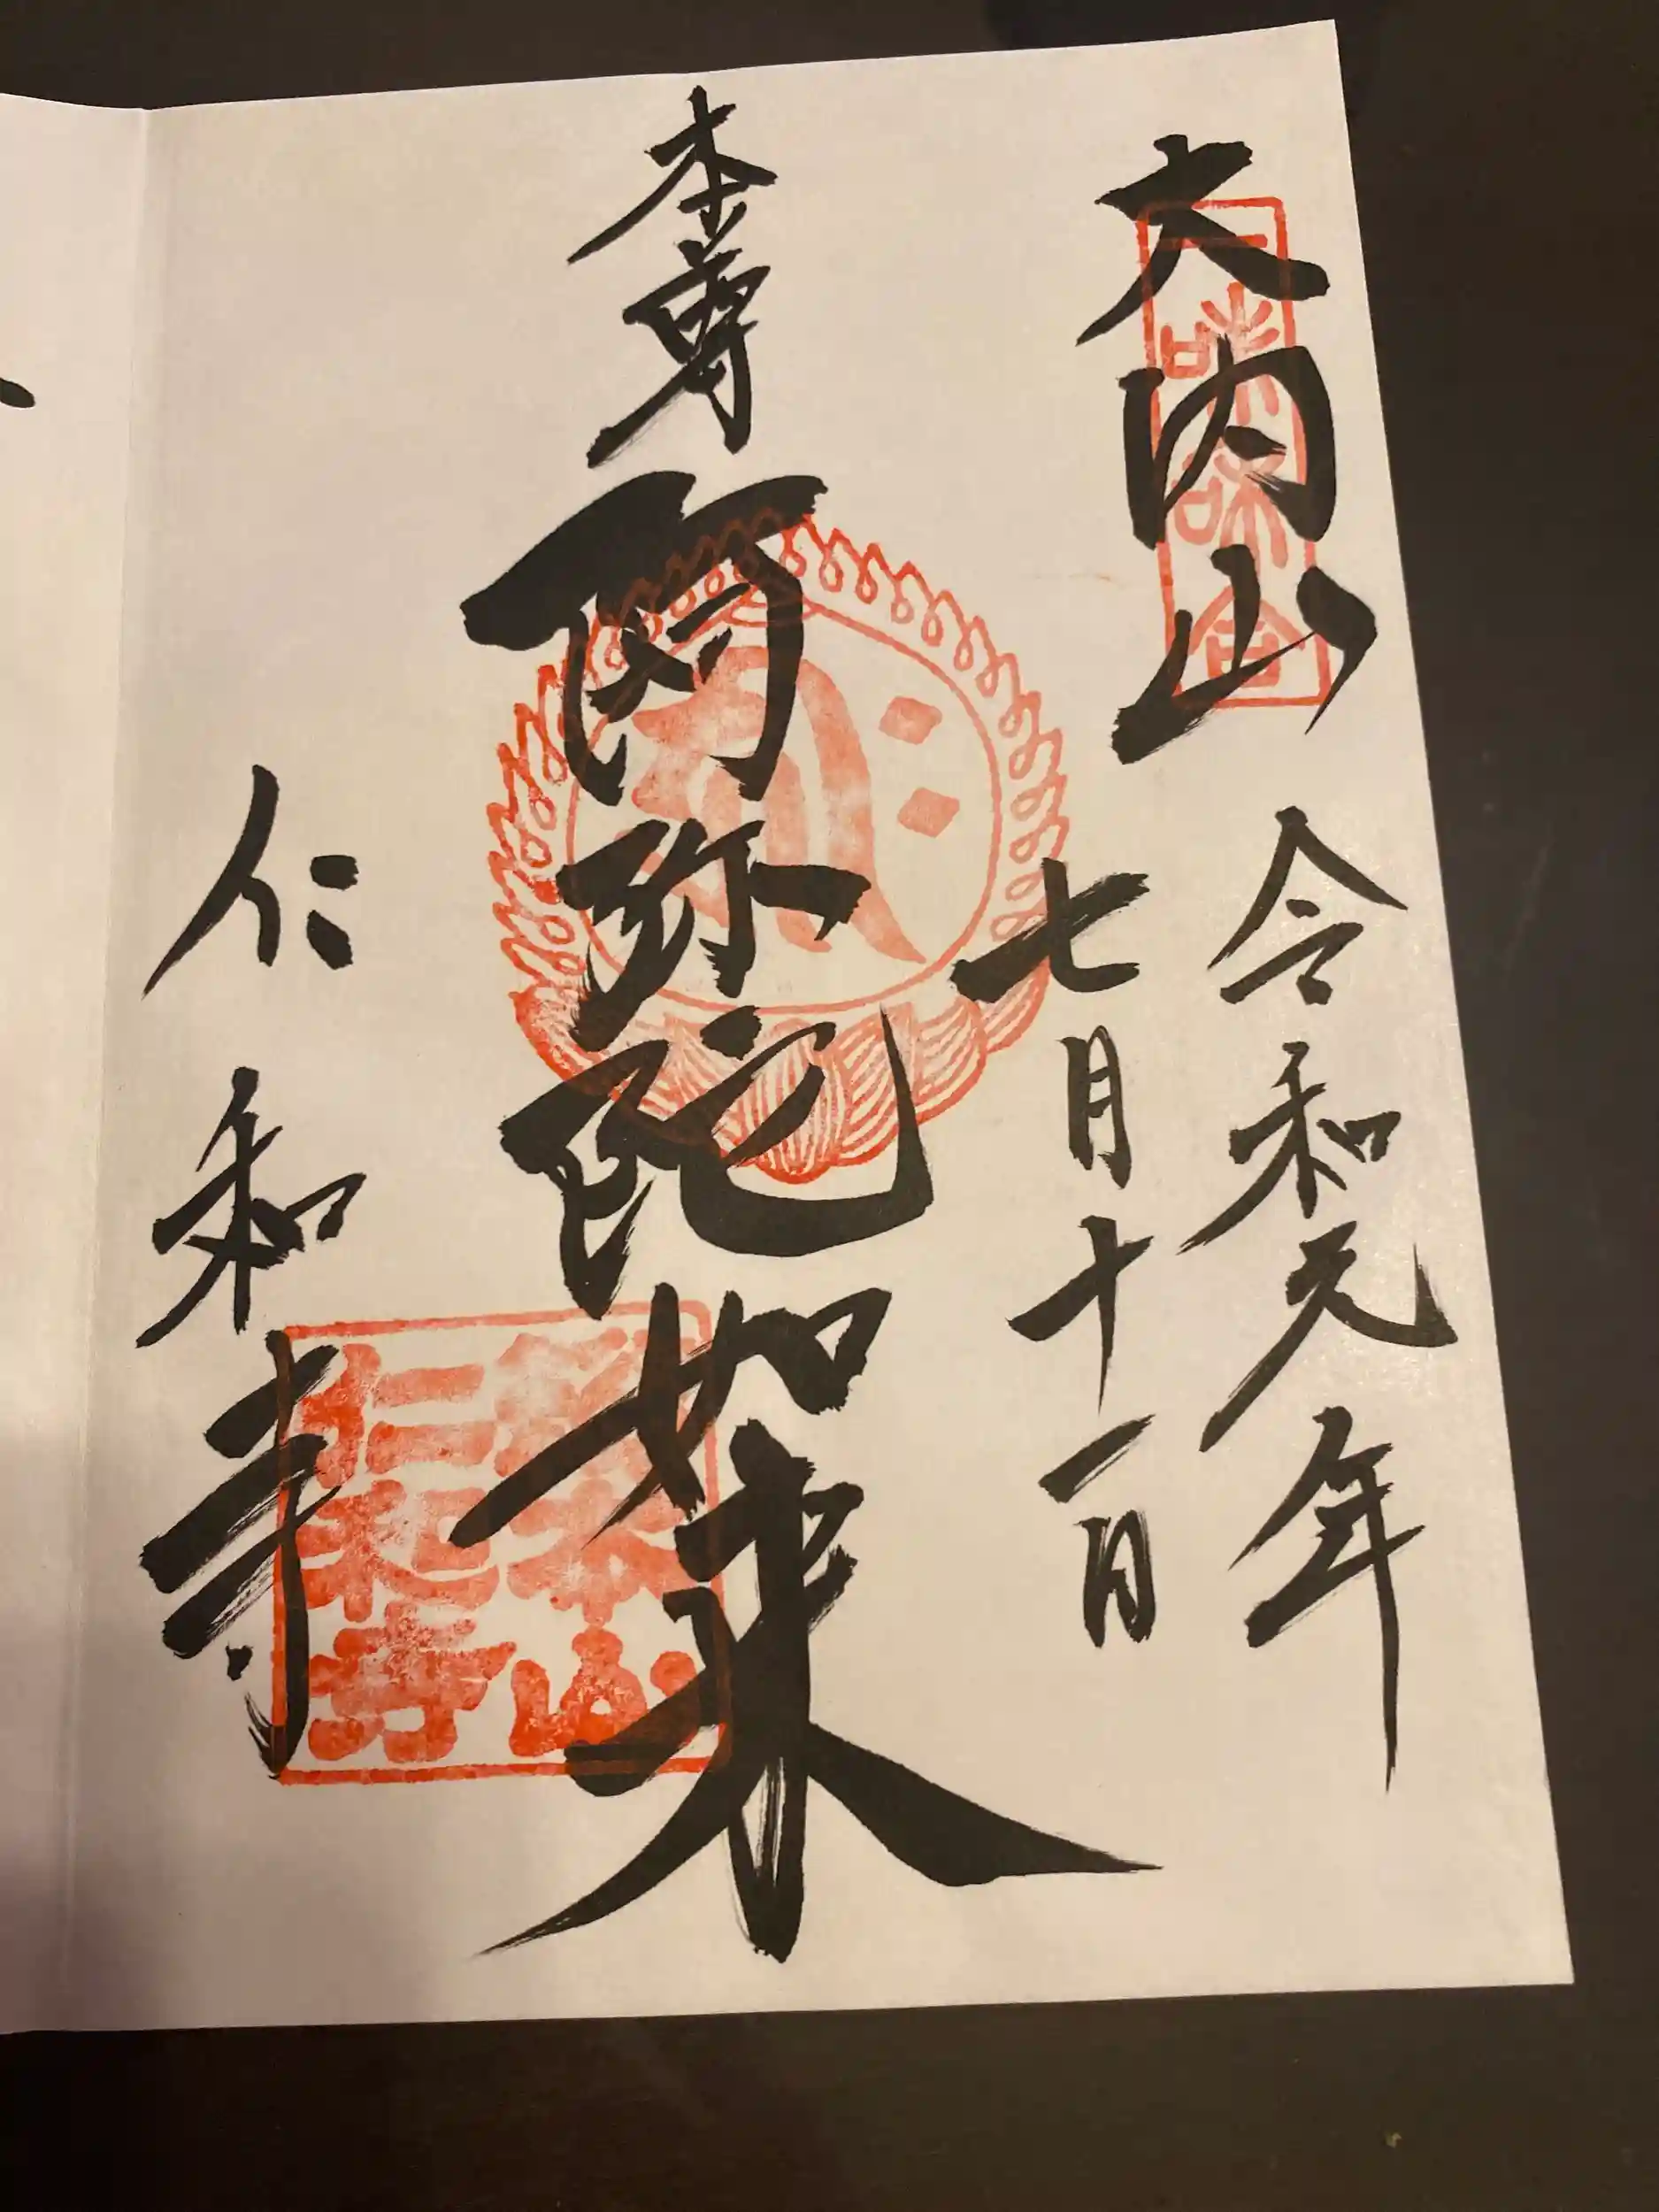 大内山
一味和合
令和元年
七月十一日
本尊
阿弥陀如来
総本山
仁和寺
仁和寺